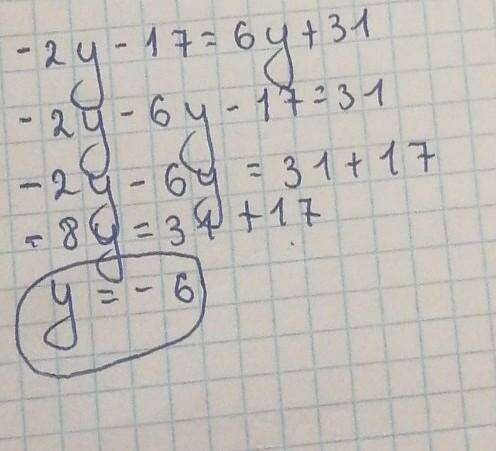 -2y-17=6y+31
-2y-6y-17=31
-2y-6y=31+17
-8y=31+17
y=-6